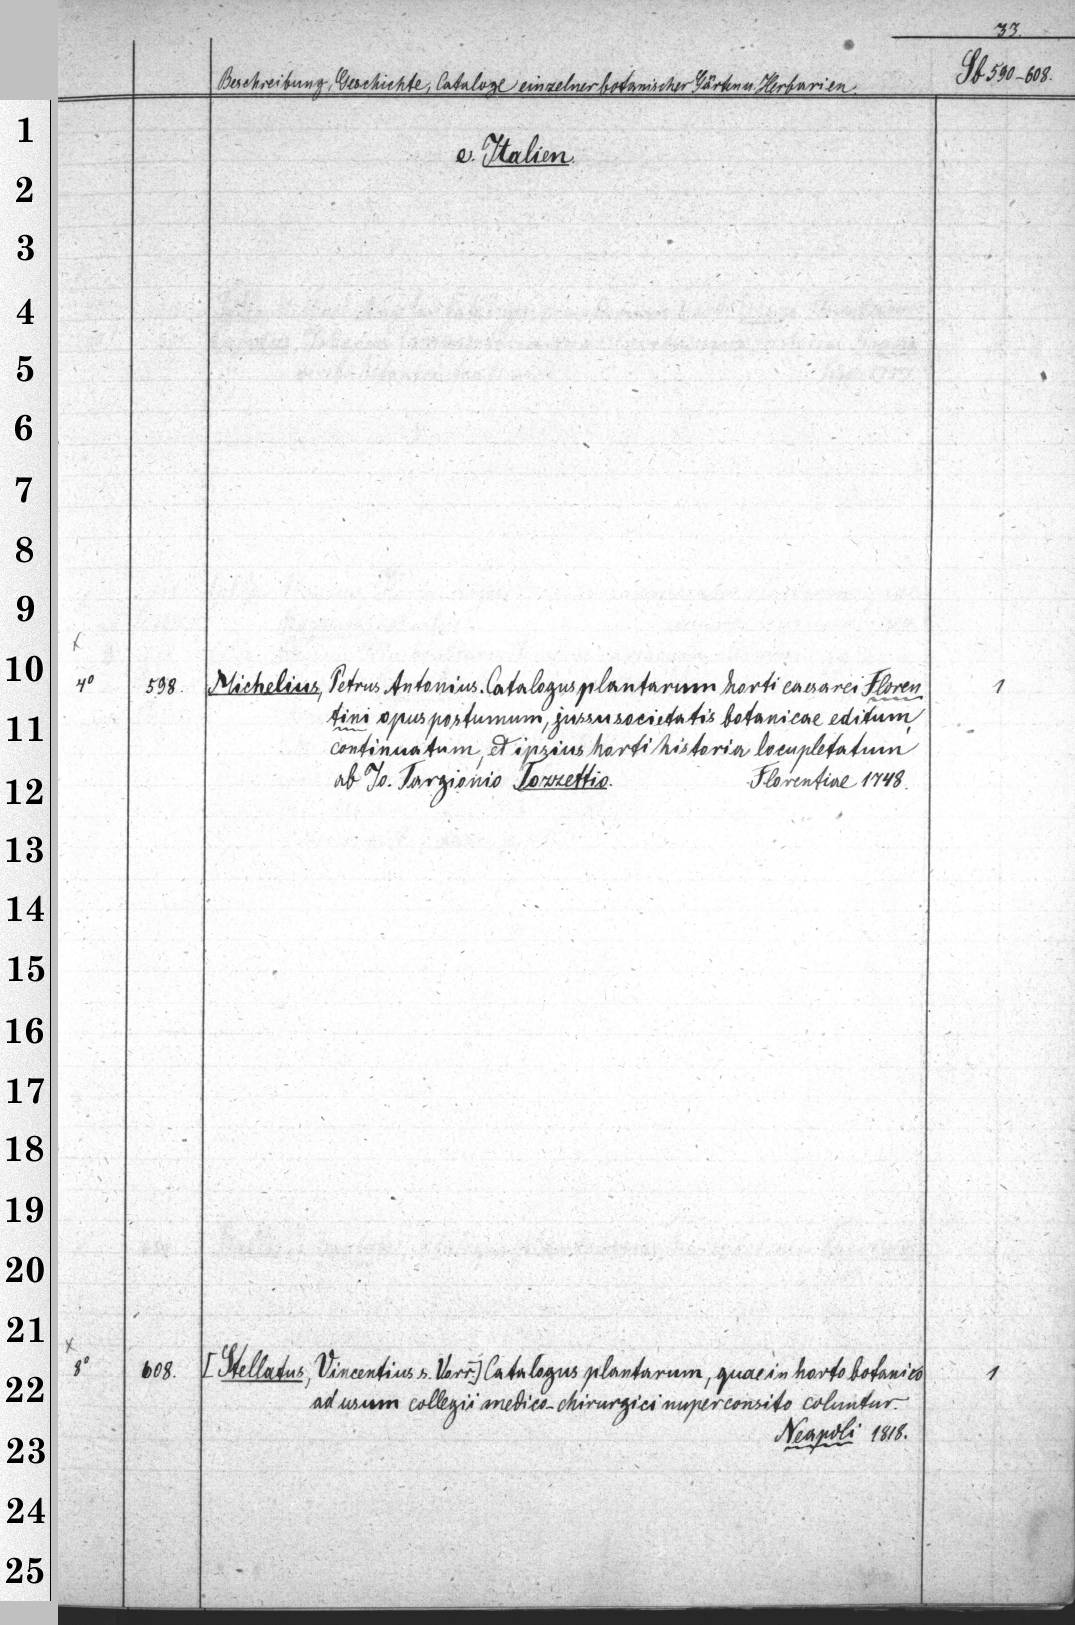 33.
Beschreibung, Geschichte, Cataloge einzelner botanischer Gärten u. Herbarien.
Sb 590-608.
e. Italien.
1
2
3
4
5
6
7
8
9
10
11
12
13
14
15
16
17
18
19
20
21
22
23
24
25
x
4° 598. Michelius, Petrus Antonius. Catalogus plantarum horti caesarei Floren 1
tini opus postumum, jussu societatis botanicae editum,
continuatum, et ipsius horti historia locupletatum
ab Jo. Targionio Tozzettio. Florentiae 1748.
x
8° 608. [Stellatus, Vincentius s. Vorr.] Catalogus plantarum, quae in horto botanico 1
ad usum collegii medico-chirurgici nuper consito coluntur.
Neapoli 1818.